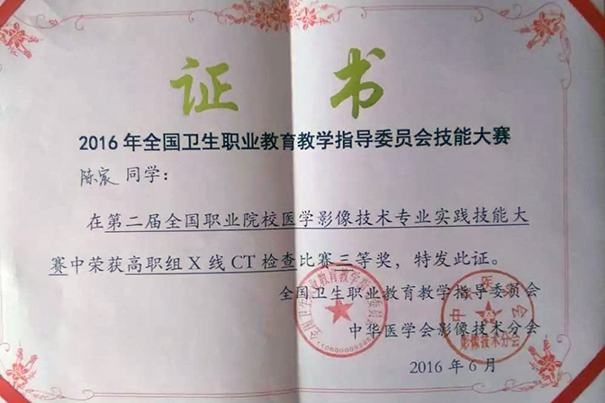 证书
2016年全国卫生职业教育教学指导委员会技能大赛
陈宸 同学：
在第二届全国职业院校医学影像技术专业实践技能大
赛中荣获高职组X线CT检查比赛三等奖，特发此证。
全国卫生职业教育教学指导委员会
中华医学会影像技术分会
2016年6月
全国卫生职业教育教学指导委员会
影像技术分会